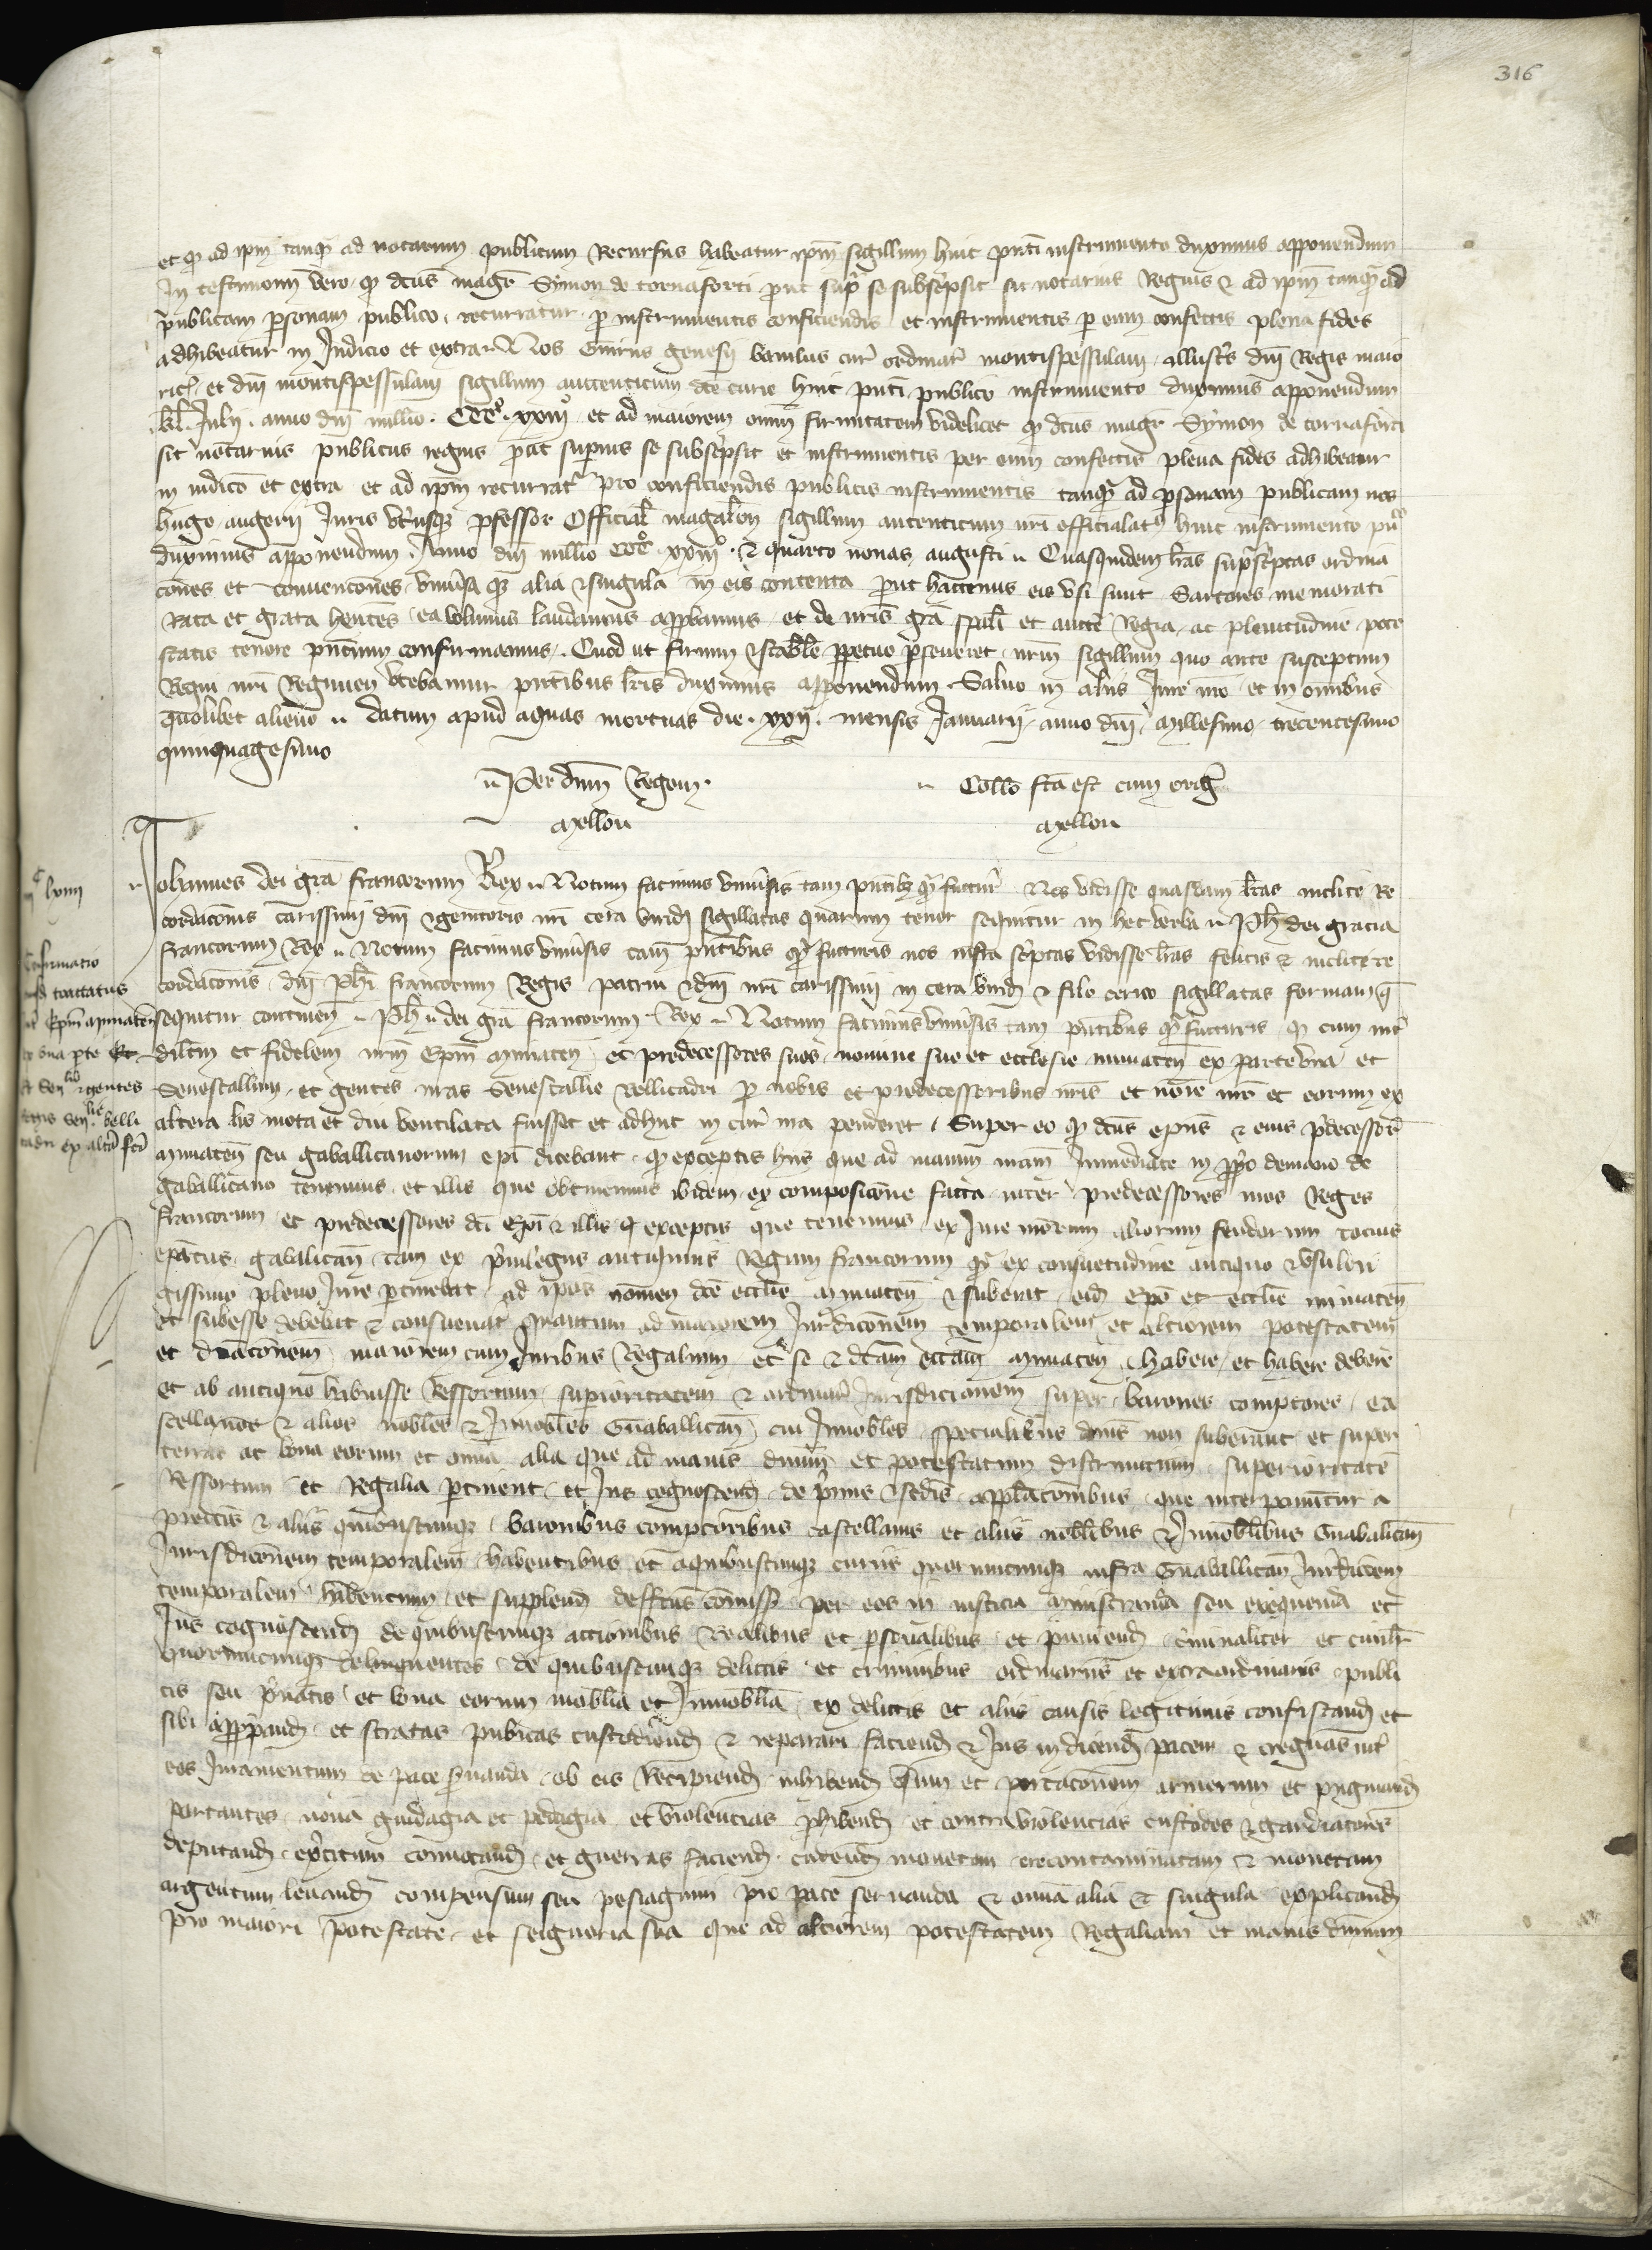 316
et q ad ipm tanq ad notarium publicum Recursus habeatur ipm sigillum huic pnti instrumento duximus apponendum
In testimoniu vero q dcus magr Symon de tornaforti prout sup se subscpsit sit notarius Regius & ad ipm tanq ad
publicam psonam publico recurratur p instrumentis conficiendis et instrumentis p eum confectis plena fides
adhibeatur in Judicio et extra Nos baiulus cur ordinar montispessulani illustrs dni Regis maio
ric et dni montispessulani sigillum auctenticum dce curie huic pnti publico instrumento duximus apponendum
kl Julii anno dni millio CCCo xxiiio et ad maiorem oium firmitatem videlicet q dcus magr Symon de tornaforti
sit notarius publicus regius put supius se subscpsit et instrumentis per eum confectis plena fides adhibeatur
in iudico et extra et ad ipm recurratr pro conficiendis publicis instrumentis tanq ad psonam publicam nos
hugo augerii Juris vtriusq pfessor Official magalon sigillum autenticum nri officialatus huic instrumento
duximus apponendum Anno dni millio CCCo xxiiio & quarto nonas augusti Quasquidem lras suprascptas ordina
cones et convencones vniusa q alia & singula in eis contenta prout hactenus eis vsi sunt Sartores memorati
Rata et grata hentes ea volumus laudamus appbamus et de nris gra spali et aucte Regia ac plenitudine pote
statis tenore pntium confirmamus Quod ut firmum & stabile ppetuo pseueret nrum sigillum quo ante susceptum
Regni nri Regimen vtebamur pntibus lris duximus apponendum Saluo in aliis Jure nro et in omnibus
quolibet alieno datum apud aquas mortuas die xxii mensis Januarii anno dni millesimo trecentesimo
quinquagesimo
Per dnum Regem Collo fca est cum orig
Mellou Mellou
Johannes dei gra francorum Rex Notum facimus vniusis tam pntibz q futur Nos vidisse quasdam lras inclite Re
cordaconis carissimi dni & genitoris nri cera viridi sigillatas quarum tenor sequitur in hec verba Ph dei gracia
francorum Rex Notum facimus vniusis tam pntibus q futuris nos infra scptas vidisse lras felicis & inclite re
cordaconis dni Phi francorum Regis patrui & dni nri carissimi in cera virid & filo cerico sigillatas formam q
sequitur continen Ph dei gra francorum Rex Notum facimus vniusis tam pntibus q futuris q cum int
dilcm et fidelem nrm Epm Mimaten et predecessores suos nomine suo et ecclesie mimaten ex parte vna et
Senescallum et gentes nras Senescallie Bellicadri p nobis et predecessoribus nris et noie nro et eorum ex
altera lis mota et diu ventilata fuisset et adhuc in cur nra penderet Super eo q dcus epus & eius pdecessor
Mimaten seu gaballitanorum epi dicebant q exceptis hiis que ad manum nram Inmediate in pprio demanio de
gaballitano tenemus et illis que obtinemus ibidem ex composicione facta inter predecessores nros Reges
francorum et predecessores dci Epi & illis q exceptis que tenemus ex Jure nrorum aliorum feudorum tocius
epatus gabalitan tam ex priuilegiis antiquis Regum francorum q ex consuetudine antiquo & vsu lon
gissimo pleno Jure ptinebat ad ipos nomen dce ecclie Mimaten & suberat eid Epo et ecclie mimaten
et subesse debebat & consueuat quantum ad maiorem Jurdiconem temporalem et alciorem potestatem
et dnaconem maiorem cum Juribus Regalium et se & dcam eccam Mimaten habere et habere debere
et ab antiquo habuisse Ressortum superioritatem & ordinar Jurisdictionem super barones comptores ca
stellanos & alios nobles & Innobles Gaballitan cui Innobles specialibus dnis non suberant et super
terras ac bona eorum et omia alia que ad maius dnium et potestatum superioritatem
Ressortum et Regalia ptinent et Jus cognoscend de pimis & scdis applaconibus que interponuntur a
predcis & aliis quibuscumq baronibus comptoribus castellanis et aliis noblibus & Innoblibus Gabalitan
Jurisdiconem temporalem habentibus et a quibuscumq curiis quorumcumq infra Gaballitan Jurdicoem
temporalem habentium et supplend deffectus commiss per eos in iusticia ministranda seu exequenda et
Jus cognoscend de quibuscumq actionibus Realibus et psonalibus et puniend criminaliter et ciuilr
quorumcumq delinquentes de quibuscumq delictis et criminibus ordinariis et extraordinariis publi
cis seu priuatis et bona eorum mobilia et Inmobilia ex delictis et aliis causis legitimis confiscand et
sibi appropriand et stratas publicas custodiend & reparari faciend & Jus indicend pacem & treguas int
eos Juramentum de pace seruanda ab eis Recipiend inhibend et portaconem armorum et pugniend
portantes noua guidagia et pedagia et violencias phibend et contra violencias custodes & gardiatores
deputand exercitum conuocand et guerras faciend cudend monetam et monetam
argentum leuand compensum seu pesiagium pro pace seruanda & omia alia & singula explicand
pro maiori potestate et seignoria sua que ad alciorem potestatem Regaliam et maius dnium
lviii
Confirmatio
tractatus
Epm Mimaten
vna pte
Sen & gentes
Regis Sen belli
cadri ex altera fci